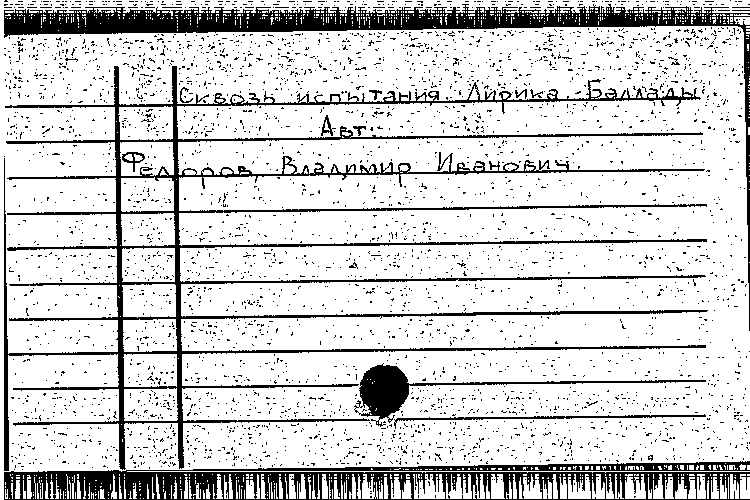 Сквозь испытания. Лирика. Баллады.
Авт.:
Федоров, Владимир Иванович.